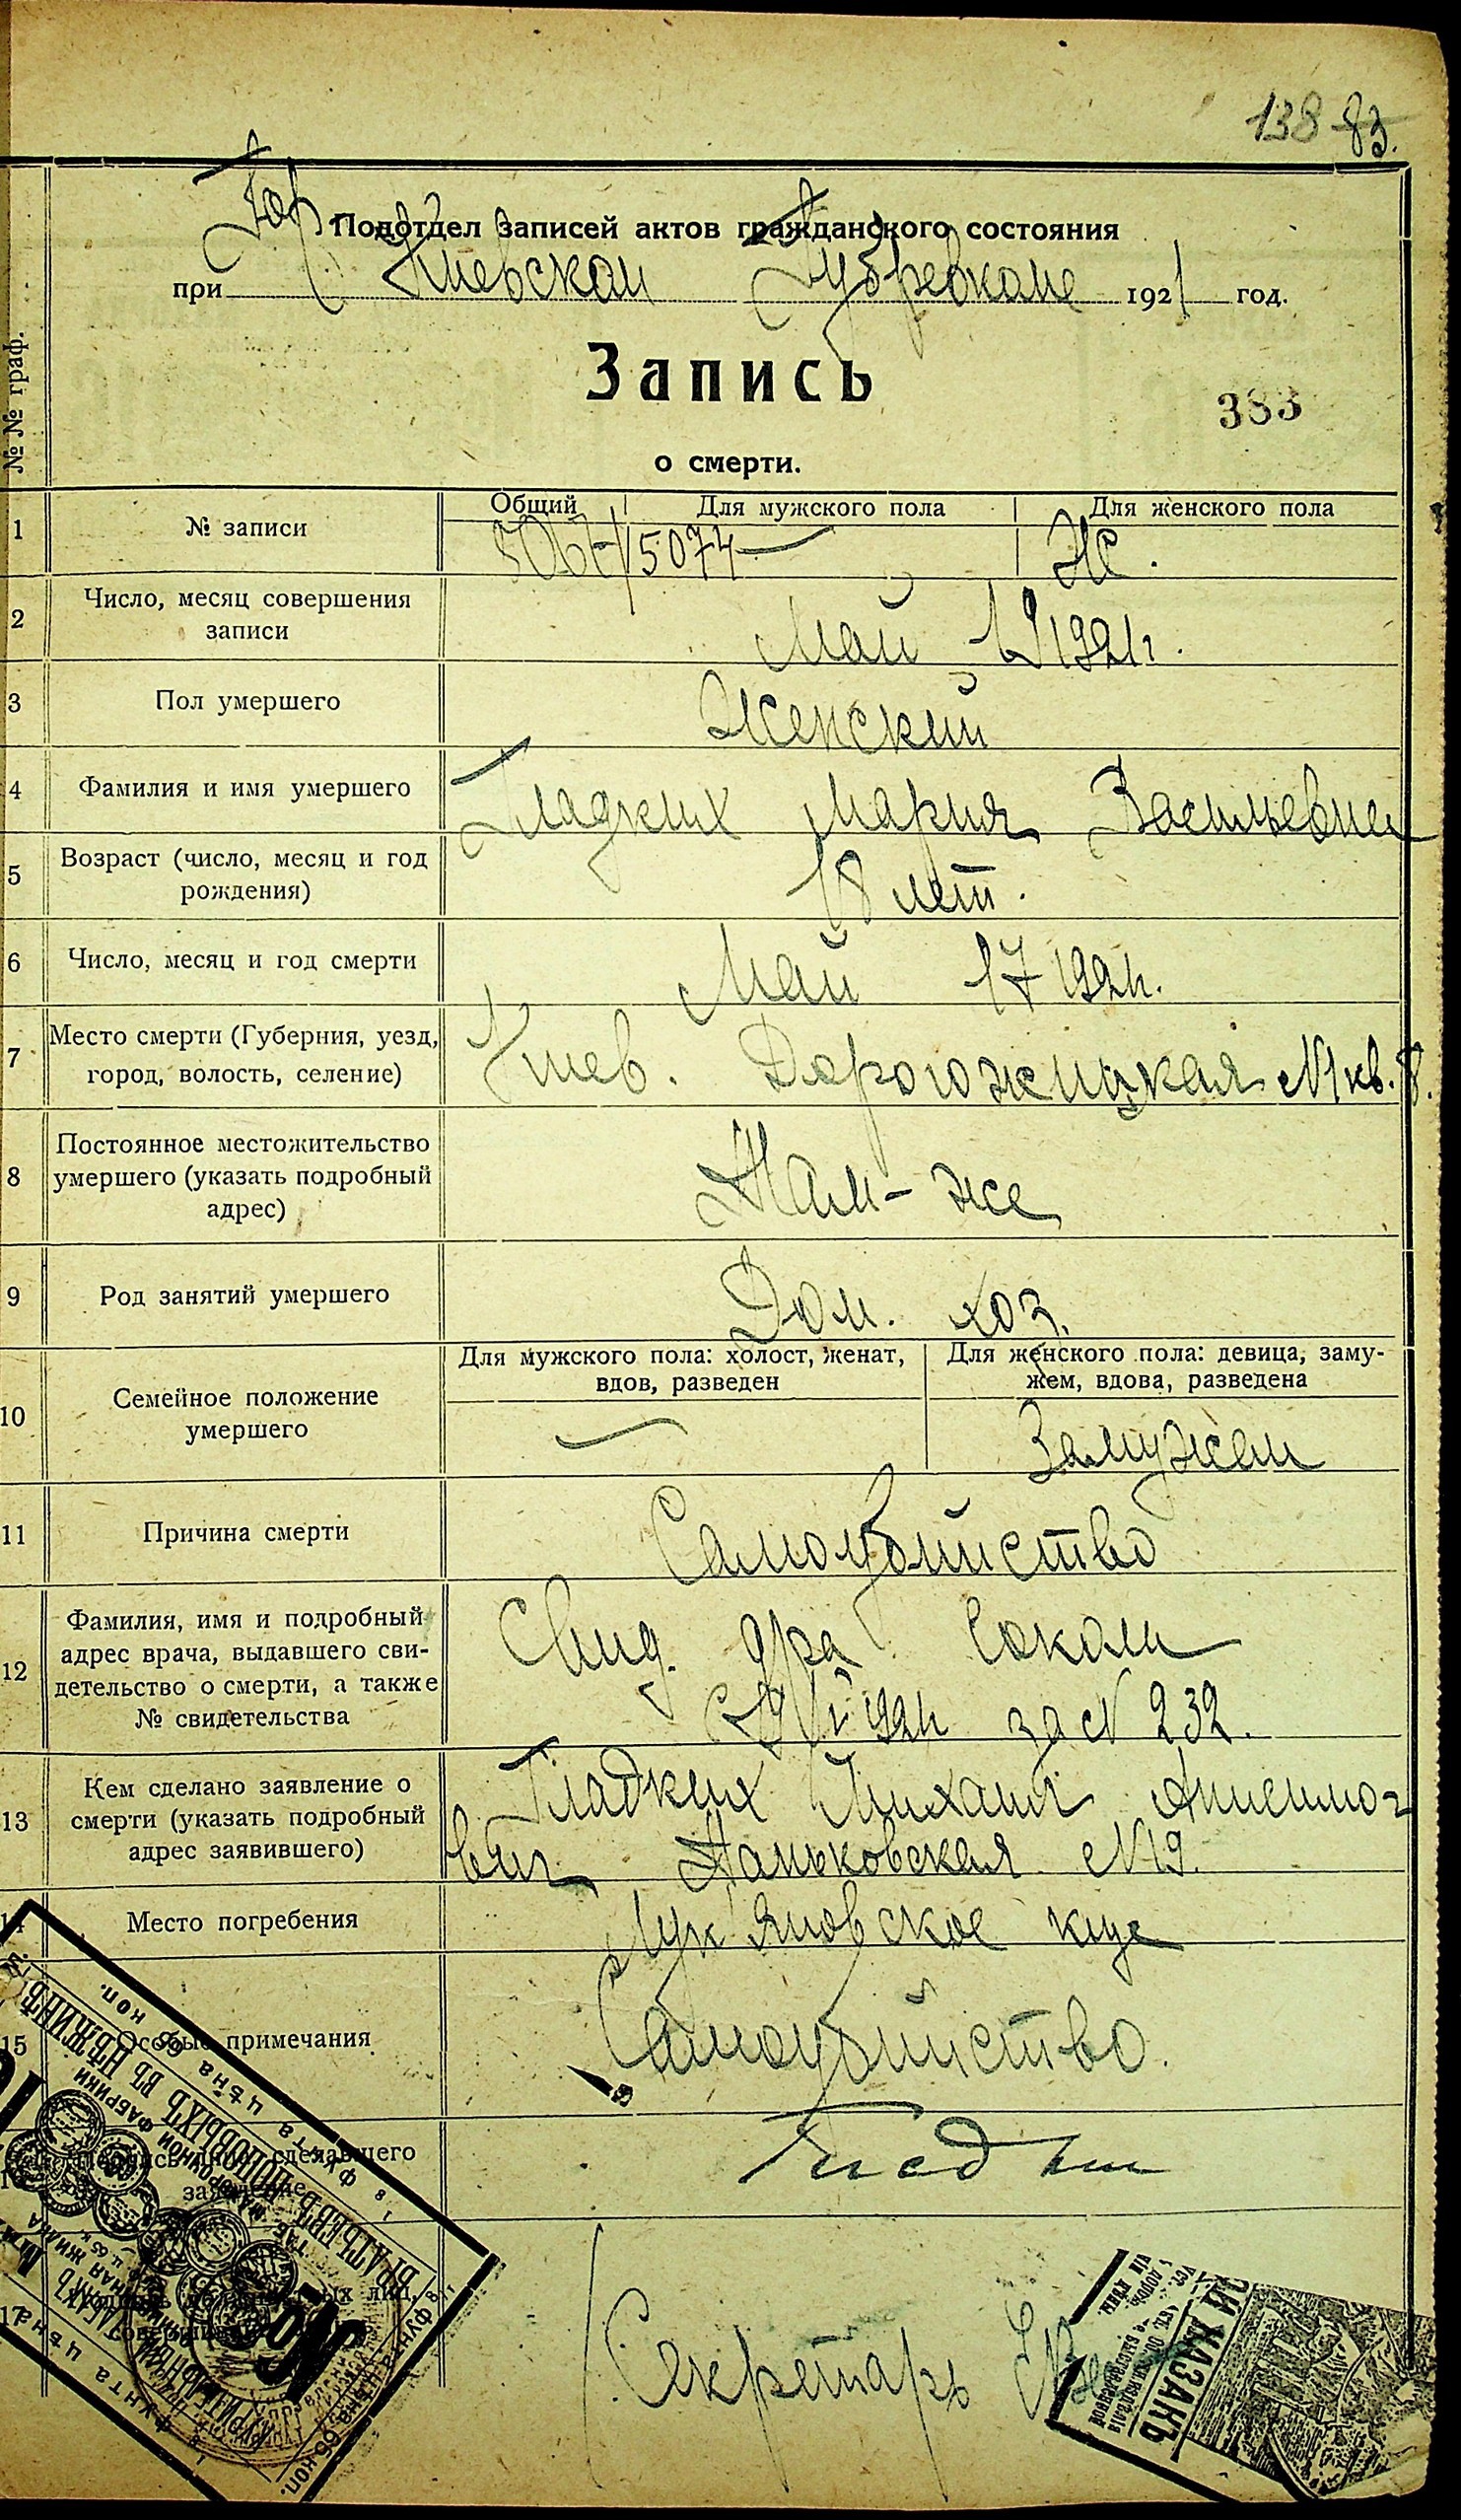 138 83.
Гор Подотдел записей актов гражданского состояния
при Киевском Губревкоме 1921 год.
Запись
383
о смерти.
№№ граф.
1 № записи Общий Для мужского пола Для женского пола
5074 — Ж.
2 Число, месяц совершения
записи Май 19 1921г.
3 Пол умершего Женский
4 Фамилия и имя умершего Гладких Мария Васильевна
5 Возраст (число, месяц и год
рождения) 18 лет.
6 Число, месяц и год смерти Май 17 1921г.
7 Место смерти (Губерния, уезд,
город, волость, селение) Киев. Дорогожицкая №1 кв. 8.
8 Постоянное местожительство
умершего (указать подробный
адрес) Там-же
9 Род занятий умершего Дом. хоз.
10 Семейное положение
умершего Для мужского пола: холост, женат,
вдов, разведен —
Для женского пола: девица, заму-
жем, вдова, разведена
Замужем
11 Причина смерти Самоубийство
12 Фамилия, имя и подробный
адрес врача, выдавшего сви-
детельство о смерти, а также
№ свидетельства Свид. дра
1921г за № 232.
13 Кем сделано заявление о
смерти (указать подробный
адрес заявившего) Гладких Михаил Анисимо-
вич Паньковская №19.
14 Место погребения Лук'яновское кще
15 Особые примечания Самоубийство.
16 сделавшего
заявление
17
Секретарь
КАЗАКЪ
БРАТЬЕВЪ ПОПОВЫХЪ ВЪ НѢЖИНѢ
ФАБРИКИ
1/8 фунта цѣна 65 коп.